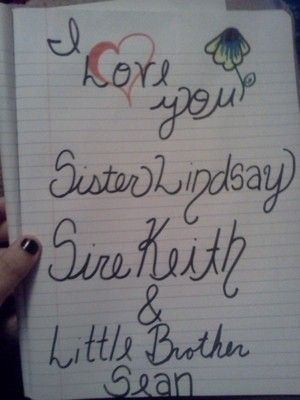 I
Love
you
Sister Lindsay
Sire Keith
&
Little Brother
Sean